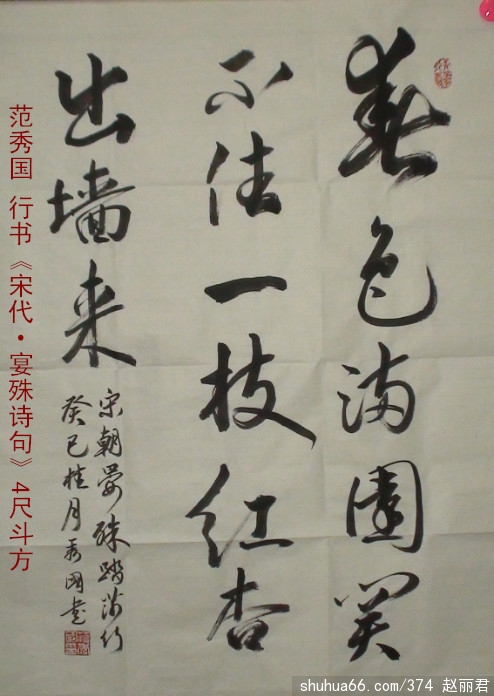 春色满園关
不住一枝红杏
出墙来
宋朝晏殊踏莎行
癸巳桂月秀国书
范秀国 行书《宋代·宴殊诗句》4尺斗方
shuhua66.com/374 赵丽君